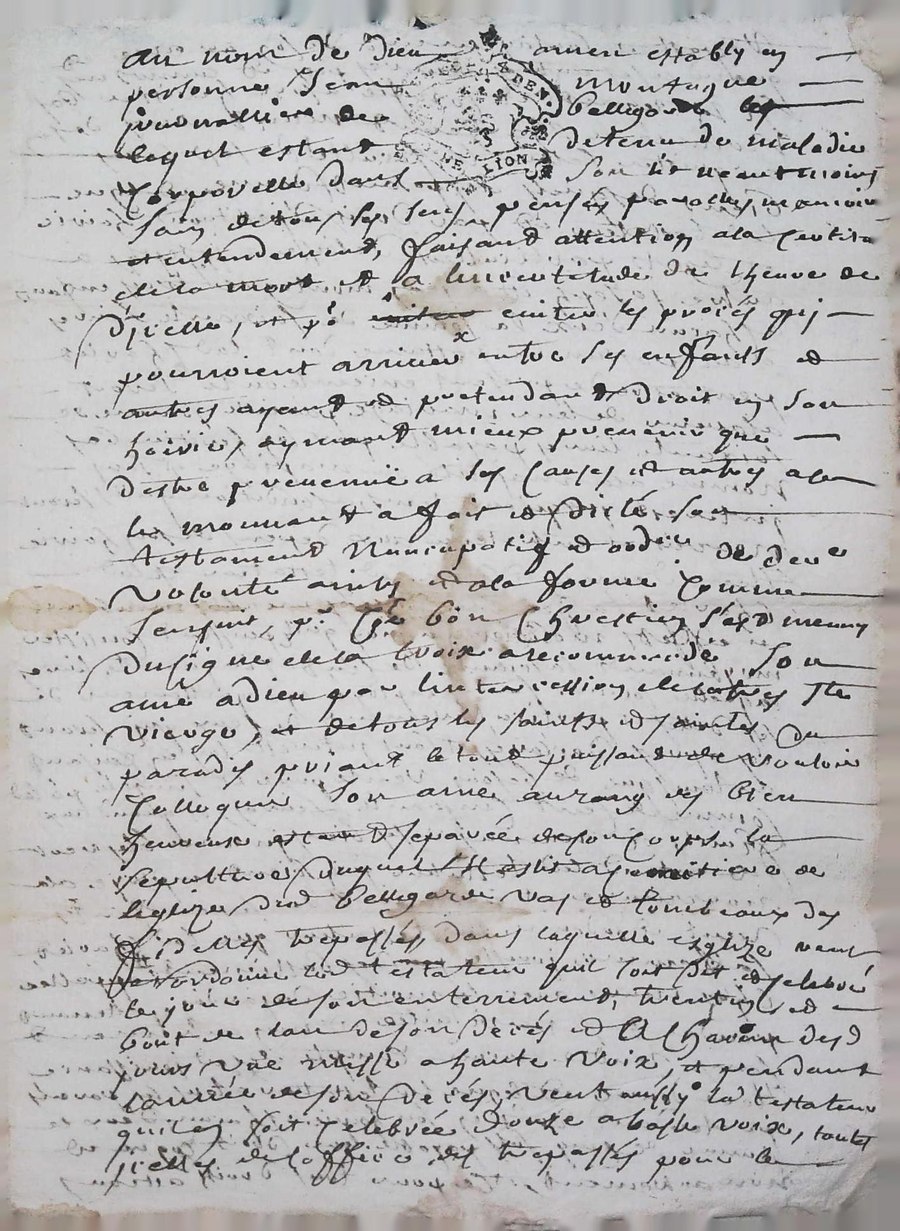 au nom de dieu amen estably en
personne Jean montagne
journallier de bellegarde
lequel estant detenu de maladie
Corporelle dans son lit neantmoins
sain de tous ses sens, pensées parolles, memoire
et entendement, faisant attention a la Certitude
de la mort et a lincertitude de lheure de
Jcelle, et pr eviter les procés qui
pourroient arriver entre ses enfants et
autres ayant et pretendant droit en son
hoirie, aymant mieux prevenir que
destre prevenu a ses Causes et autres a
le mouvant a fait et dicté son
testament nuncupatif et ordre de dere
volonté ainsy et a la forme Comme
sensuit, pr Coe bon Chrestien sest muny
du signe de la Croix a recommandé son
ame a dieu par lintercession de la tres Ste
vierge, et de tous les saints et saintes du
paradis priant le tout puissant de vouloir
Colloquer son ame au rang des bien
heureuse estant separée de son Corps, la
sepulture duquel il eslit a
leglize dud bellegarde vas et tombeaux des
fidelles trepassés dans laquelle esglize veut
et ordonne led testateur quil soit dit et Celebré
le jour de son enterrement, trentin et
bout de lan de son decés et a Chacun desd
jours une messe a haute voix, et pendant
lannée de son decés, veut aussy led testateur
quil en soit Celebrée douze a basse voix, toutes
jcelles de loffice des trepassés pour le